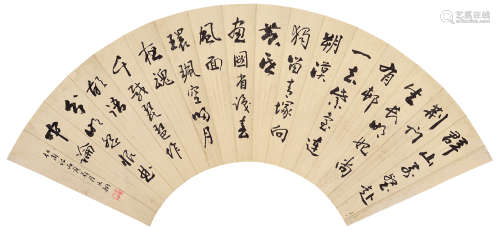 群山万壑赴
荊門
生長明妃尚
有邨
一去紫臺連
朔漠
獨留青塚向
黃昏
畫圖省識春
風面
環珮空歸月
夜魂
千載琵琶作
胡語
分明怨恨曲
中論